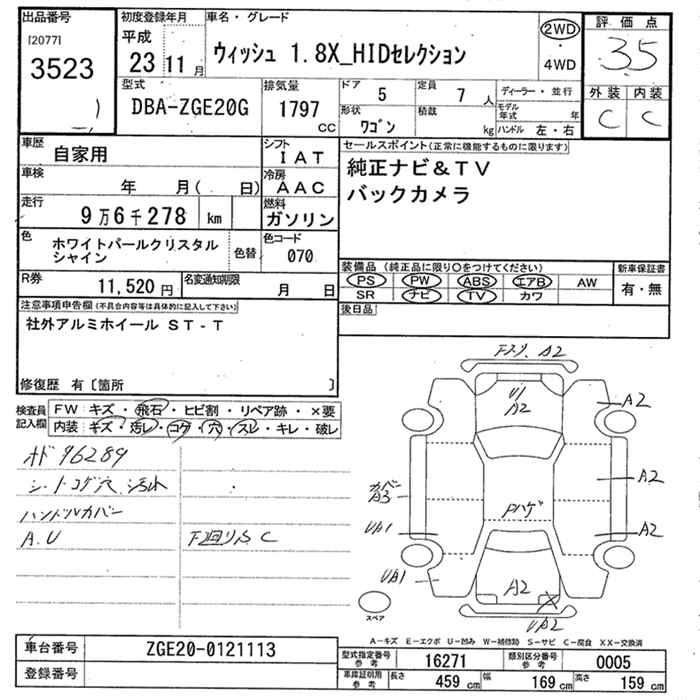 出品番号 初度登録年月 車名・グレード 評価点
[2077] 平成
3523 23年11月 ウィッシュ 1.8X_HIDセレクション 2WD・4WD 3.5
型式 排気量 ドア 5 定員 7人 ディーラー・並行 外装 内装
DBA-ZGE20G 1797cc 形状 ワゴン 積載 kg モデル年式 年 C C
ハンドル 左・右
車歴 自家用 シフト IAT セールスポイント(正常に機能するものに限ります)
車検 年 月( 日) 冷房 AAC 純正ナビ&TV
走行 9万6千278 km 燃料 ガソリン バックカメラ
色 ホワイトパールクリスタルシャイン 色替 色コード 070
装備品(純正品に限り○をつけてください) 新車保証書
R券 11,520円 名変通知期限 月 日 PS PW ABS エアB AW 有・無
SR ナビ TV カワ
注意事項申告欄(不具合内容等は具体的に記入して下さい) 後日品
社外アルミホイール ST-T
修復歴 有〔箇所 〕
検査員記入欄 FW:キズ・飛石・ヒビ割・リペア跡・×要
内装:キズ・汚レ・コゲ・穴・スレ・キレ・破レ
96289
シートコゲ穴 汚れ
ハンドルカバー
A.U
F廻りS C
A2
U1
A2
A2
カバー
A3
Pハゲ
A2
A2
UA1
UA1
A2
UA2
スペア
A-キズ E-エクボ U-凹み W-補修跡 S-サビ C-腐食 XX-交換済
車台番号 ZGE20-0121113 型式指定番号 参考 16271 類別区分番号 参考 0005
登録番号 車庫証明用 参考 長さ 459cm 幅 169cm 高さ 159cm